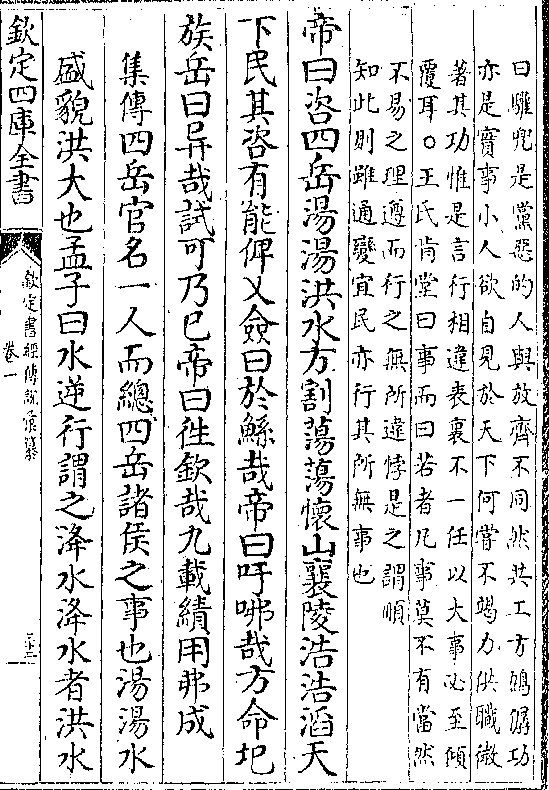 曰驩兜是黨惡的人與放齊不同然共工方鳩僝功
亦是實事小人欲自見於天下何嘗不竭力供職微
著其功惟是言行相違表裏不一任以大事必至傾
覆耳○王氏肯堂曰事而曰若者凡事莫不有當然
不易之理遵而行之無所違悖是之謂順
知此則雖通變宜民亦行其所無事也
帝曰咨四岳湯湯洪水方割蕩蕩懷山襄陵浩浩滔天
下民其咨有能俾乂僉曰於鯀哉帝曰吁咈哉方命圮
族岳曰异哉試可乃已帝曰往欽哉九載績用弗成
集傳四岳官名一人而總四岳諸侯之事也湯湯水
盛貌洪大也孟子曰水逆行謂之洚水洚水者洪水
欽定四庫全書
欽定書經傳說彙纂
卷一
三十三